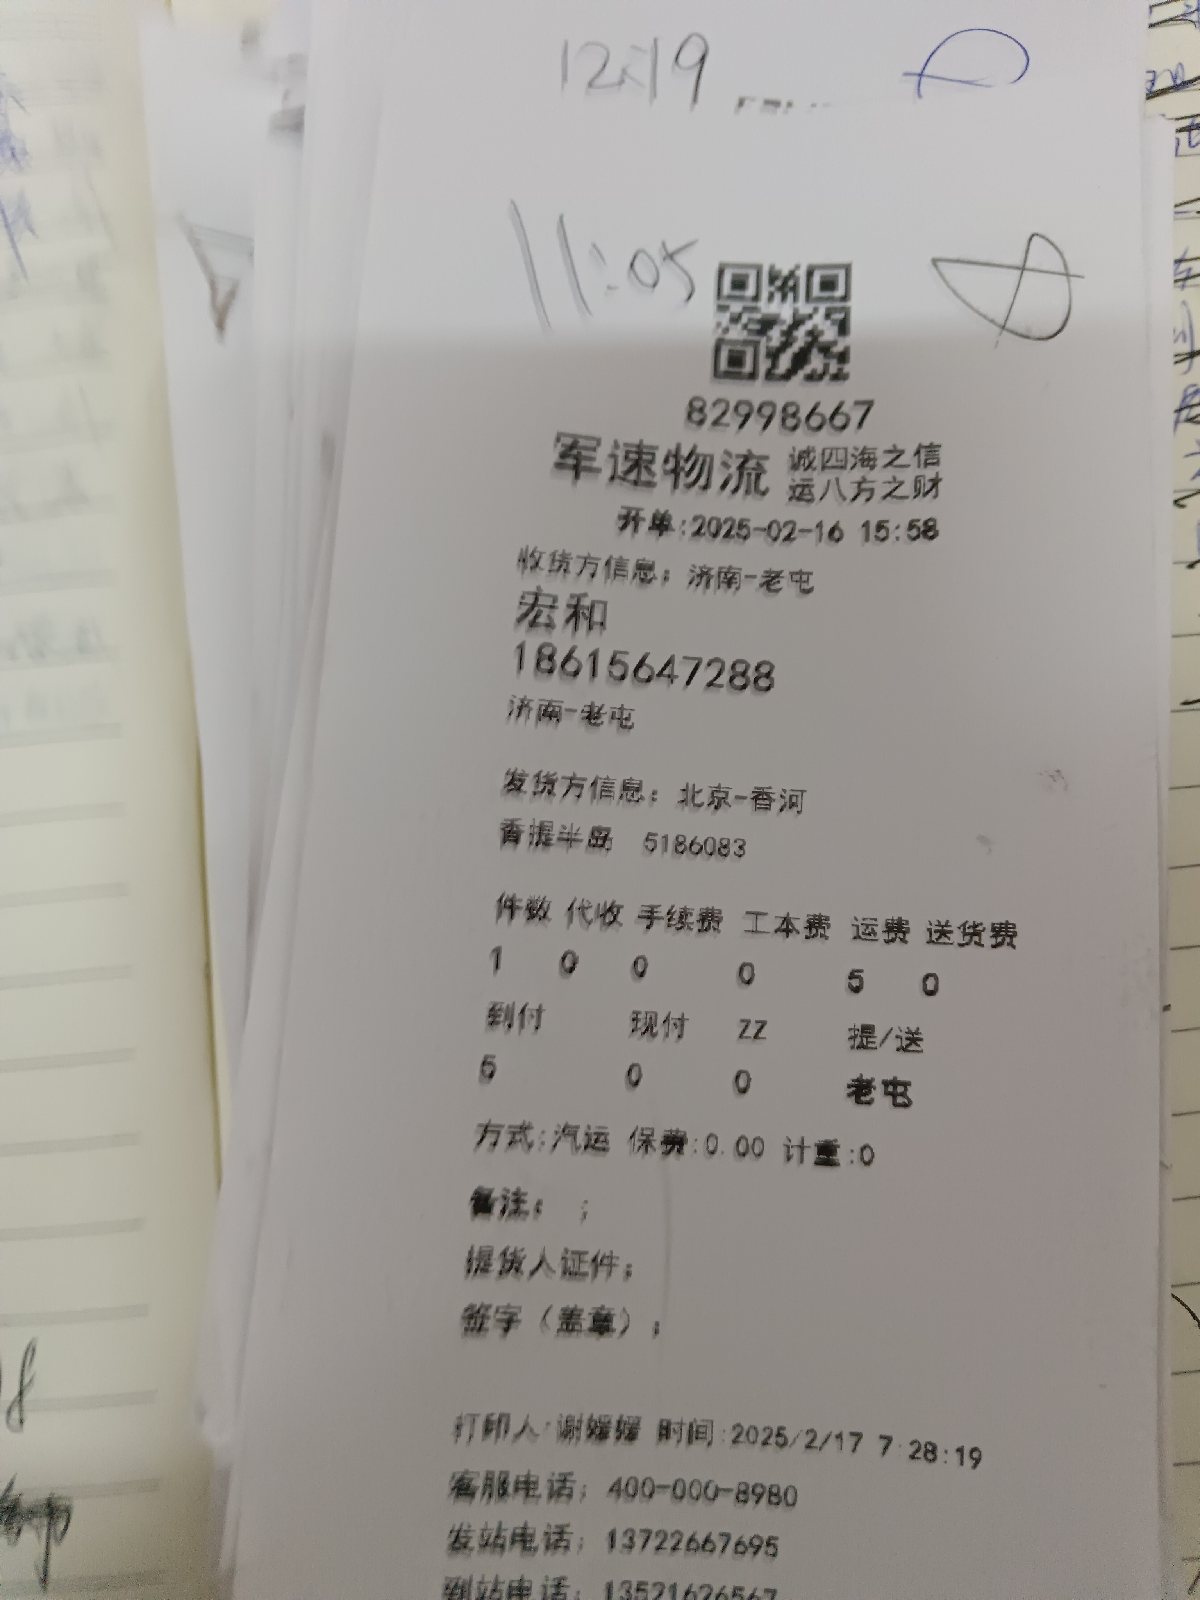 12:19
11:05
82998667
军速物流 诚四海之信
运八方之财
开单:2025-02-16 15:58
收货方信息: 济南-老屯
宏和
18615647288
济南-老屯
发货方信息: 北京-香河
香提半岛 5186083
件数 代收 手续费 工本费 运费 送货费
1 0 0 0 5 0
到付 现付 ZZ 提/送
5 0 0 老屯
方式:汽运 保费:0.00 计重:0
备注: ;
提货人证件:
签字(盖章):
打印人:谢媛媛 时间:2025/2/17 7:28:19
客服电话: 400-000-8980
发站电话: 13722667695
到站电话: 13521626567